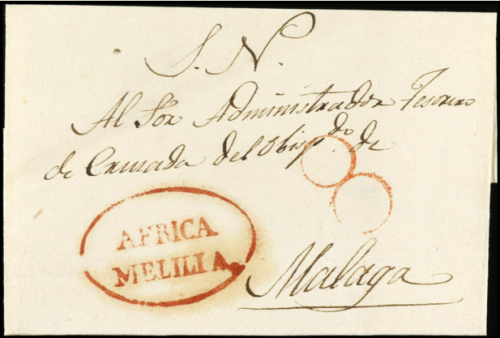 S. N.
Al Sor Administrador Tesorero
de Cruzada del Obispdo de
Malaga
AFRICA
MELILLA